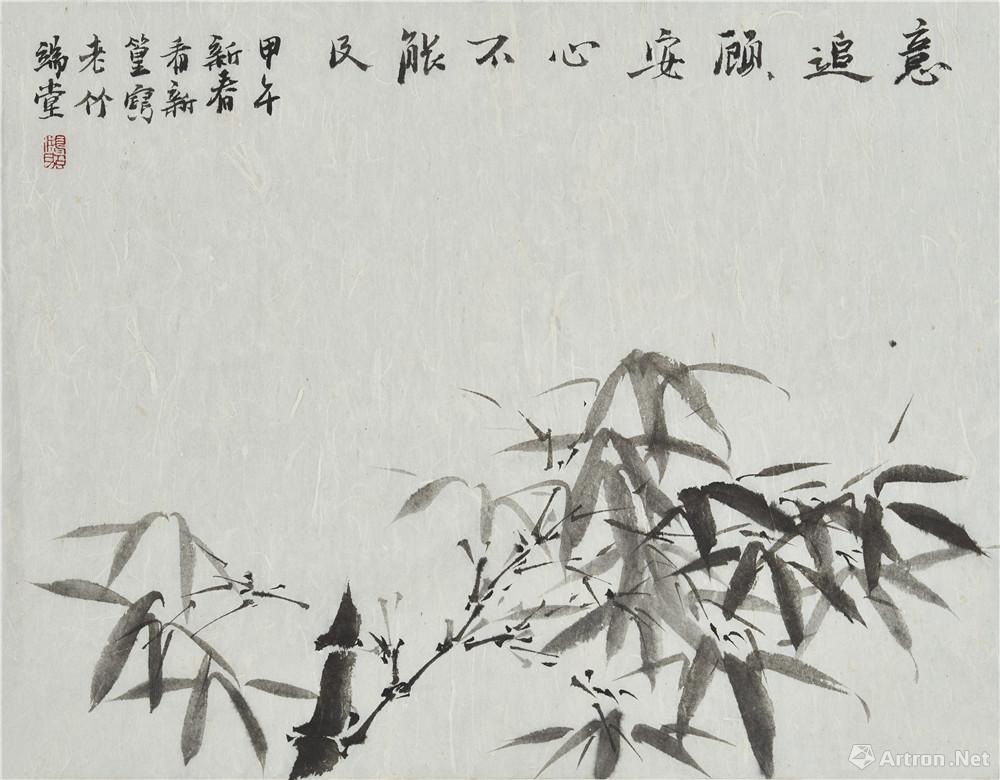 意追顾安心不能及
甲午
新春
看新
篁寫
老竹
端堂
Artron.Net